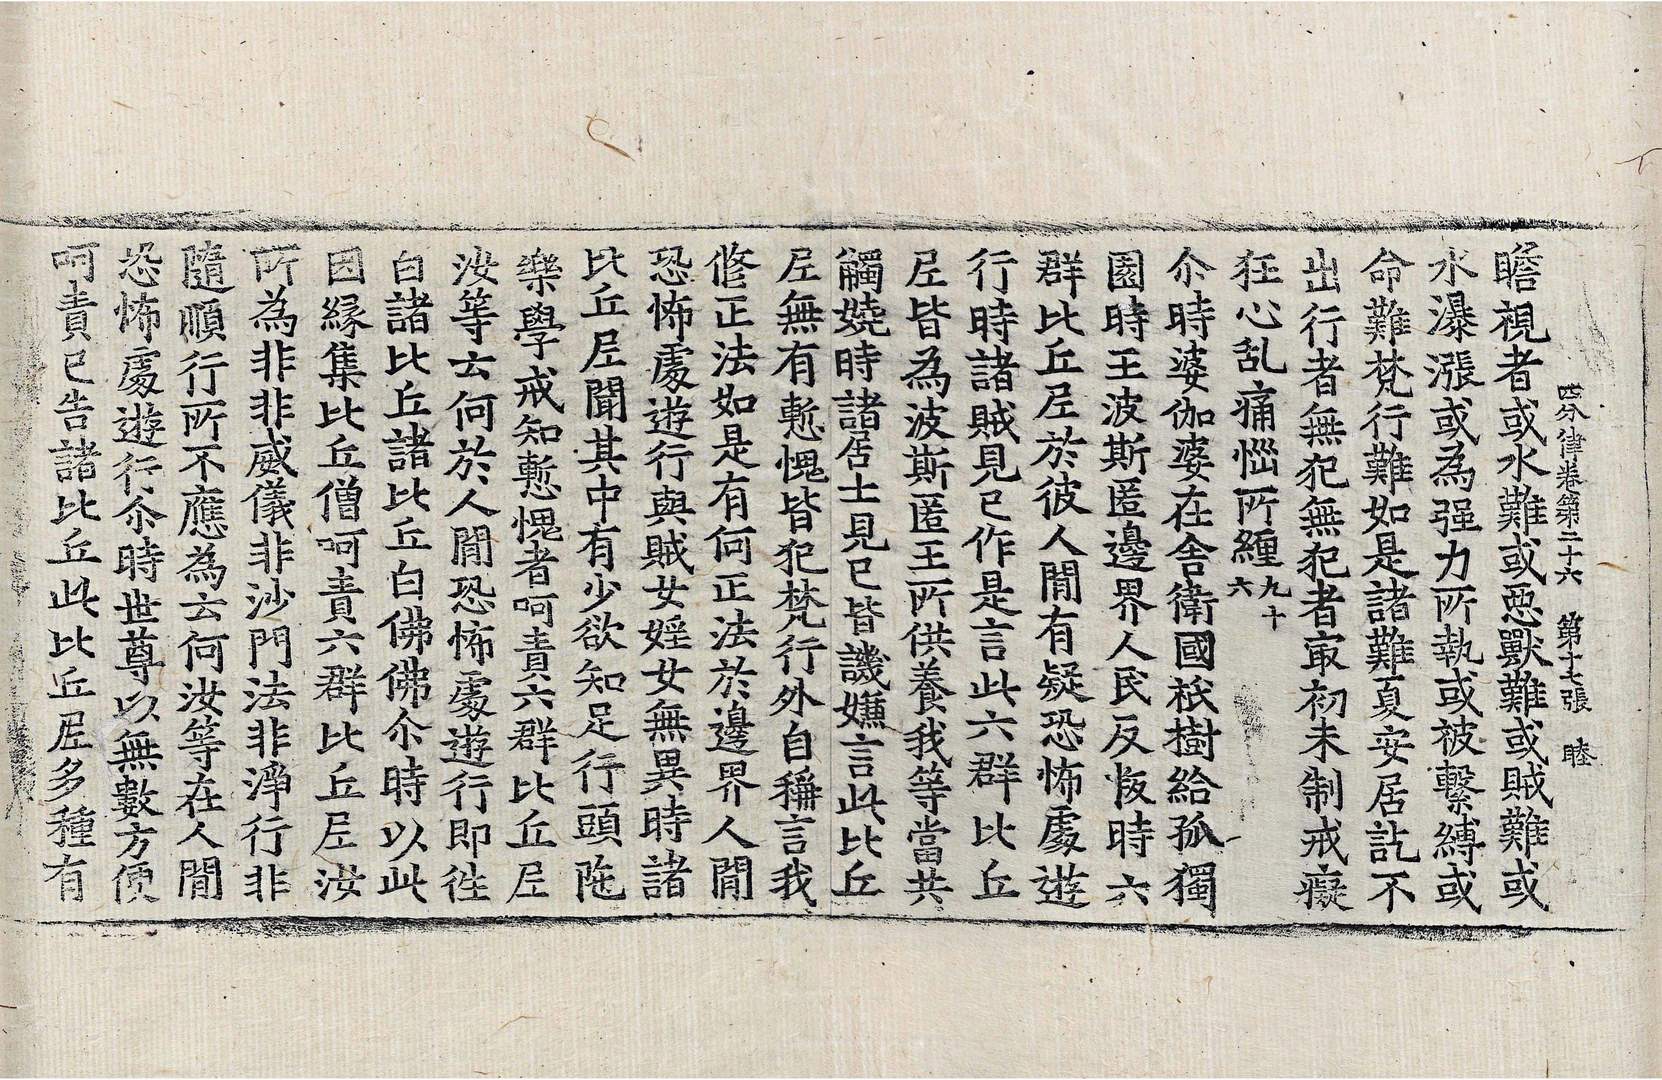 四分律卷第二十六　第十七張　睦
瞻視者或水難或惡獸難或賊難或
水瀑漲或為强力所執或被繫縛或
命難梵行難如是諸難夏安居訖不
出行者無犯無犯者㝡初未制戒癡
狂心乱痛惱所纏九十六
尒時婆伽婆在舍衛國祇樹給孤獨
園時王波斯匿邊界人民反叛時六
群比丘尼於彼人閒有疑恐怖處遊
行時諸賊見已作是言此六群比丘
尼皆為波斯匿王所供養我等當共
觸嬈時諸居士見已皆譏嫌言此比丘
尼無有慙愧皆犯梵行外自稱言我
修正法如是有何正法於邊界人閒
恐怖處遊行與賊女婬女無異時諸
比丘尼聞其中有少欲知足行頭陁
樂學戒知慙愧者呵責六群比丘尼
汝等云何於人閒恐怖處遊行即徃
白諸比丘諸比丘白佛佛尒時以此
因縁集比丘僧呵責六群比丘尼汝
所為非非威儀非沙門法非淨行非
隨順行所不應為云何汝等在人閒
恐怖處遊行尒時世尊以無數方便
呵責已告諸比丘此比丘尼多種有